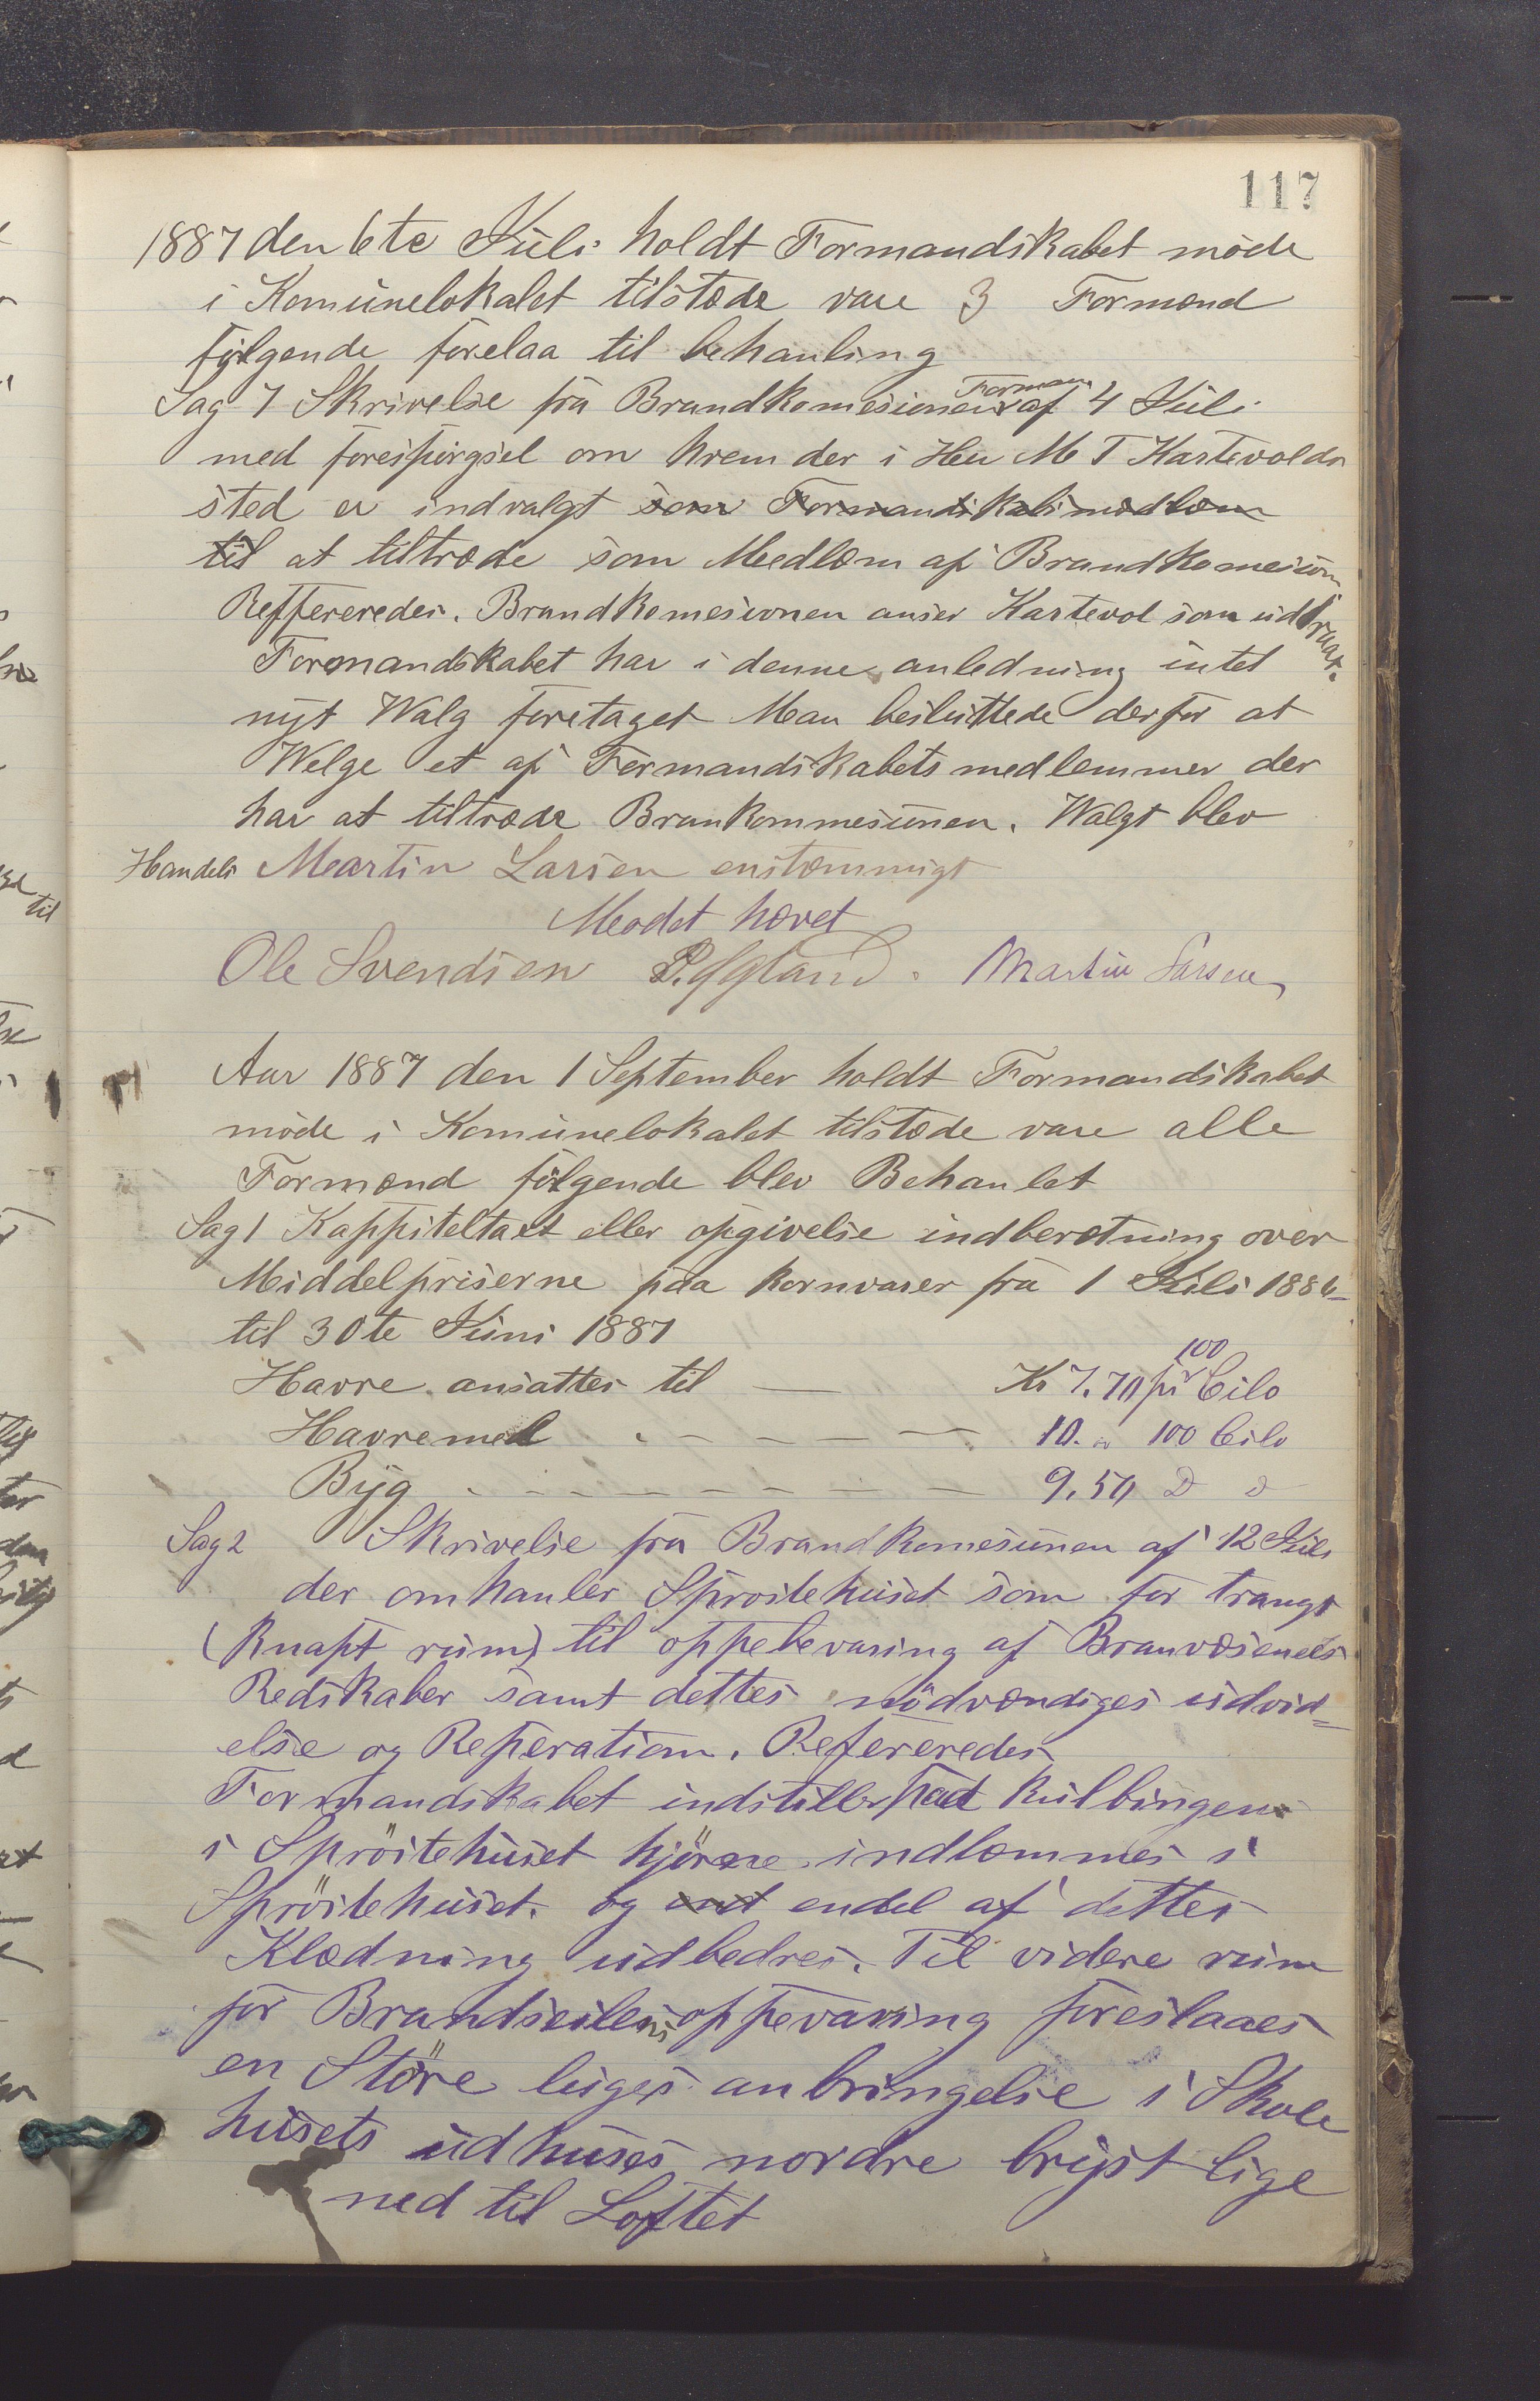 117
1887 den 6te Juli holdt Formandskabet møde
i Komunelokalet tilstæde vare 3 Formænd
følgende forelaa til behanling
Sag 1 Skrivelse fra Brandkomesionens Formann af 4 Juli
med forespørgsel om hvem der i Herr M T Kartevolds
sted er indvalgt som Formandskabsmedlem
til at tiltræde som Medlem af Brandkomesion
Reffereredes. Brandkomesionen anser Kartevol som udtraat.
Formandskabet har i denne anledning intet
nyt Walg foretaget Man besluttede derfor at
Welge et af Formandskabets medlemmer der
har at tiltræde Brankommesionen. Walgt blev
Handels Martin Larsen enstemmigt
Mødet hævet
Ole Svendsen P. Eggland. Martin Larsen
Aar 1887 den 1 September holdt Formandskabet
møde i Komunelokalet tilstæde vare alle
Formænd følgende blev Behanlet
Sag 1 Kappiteltaxt eller opgivelse indberetning over
Middelpriserne paa kornvarer fra 1 Juli 1886
til 30te Juni 1887
Havre ansattes til — Kr 7.70 pr 100 Cilo
Havremel - - - - - 10. " 100 Cilo
Byg - - - - - - - - 9.50 D D
Sag 2 Skrivelse fra Brandkomesionen af 12 Juli
der omhanler Sprøitehuset som for trangt
(knapt rum) til oppebevaring af Branvæsenets
Redskaber samt dettes nødvendiges udvid=
else og Reperation. Refereredes
Formandskabet indstiller paa at kulbingen
i Sprøitehuset hjørne indlemmes i
Sprøitehuset. og and endel af dettes
Klædning udbedres. Til videre rum
for Brandseilens oppevaring foreslaaes
en Støre liges anbringelse i Skole
husets udhuses nordre bryst lige
ned til Loftet